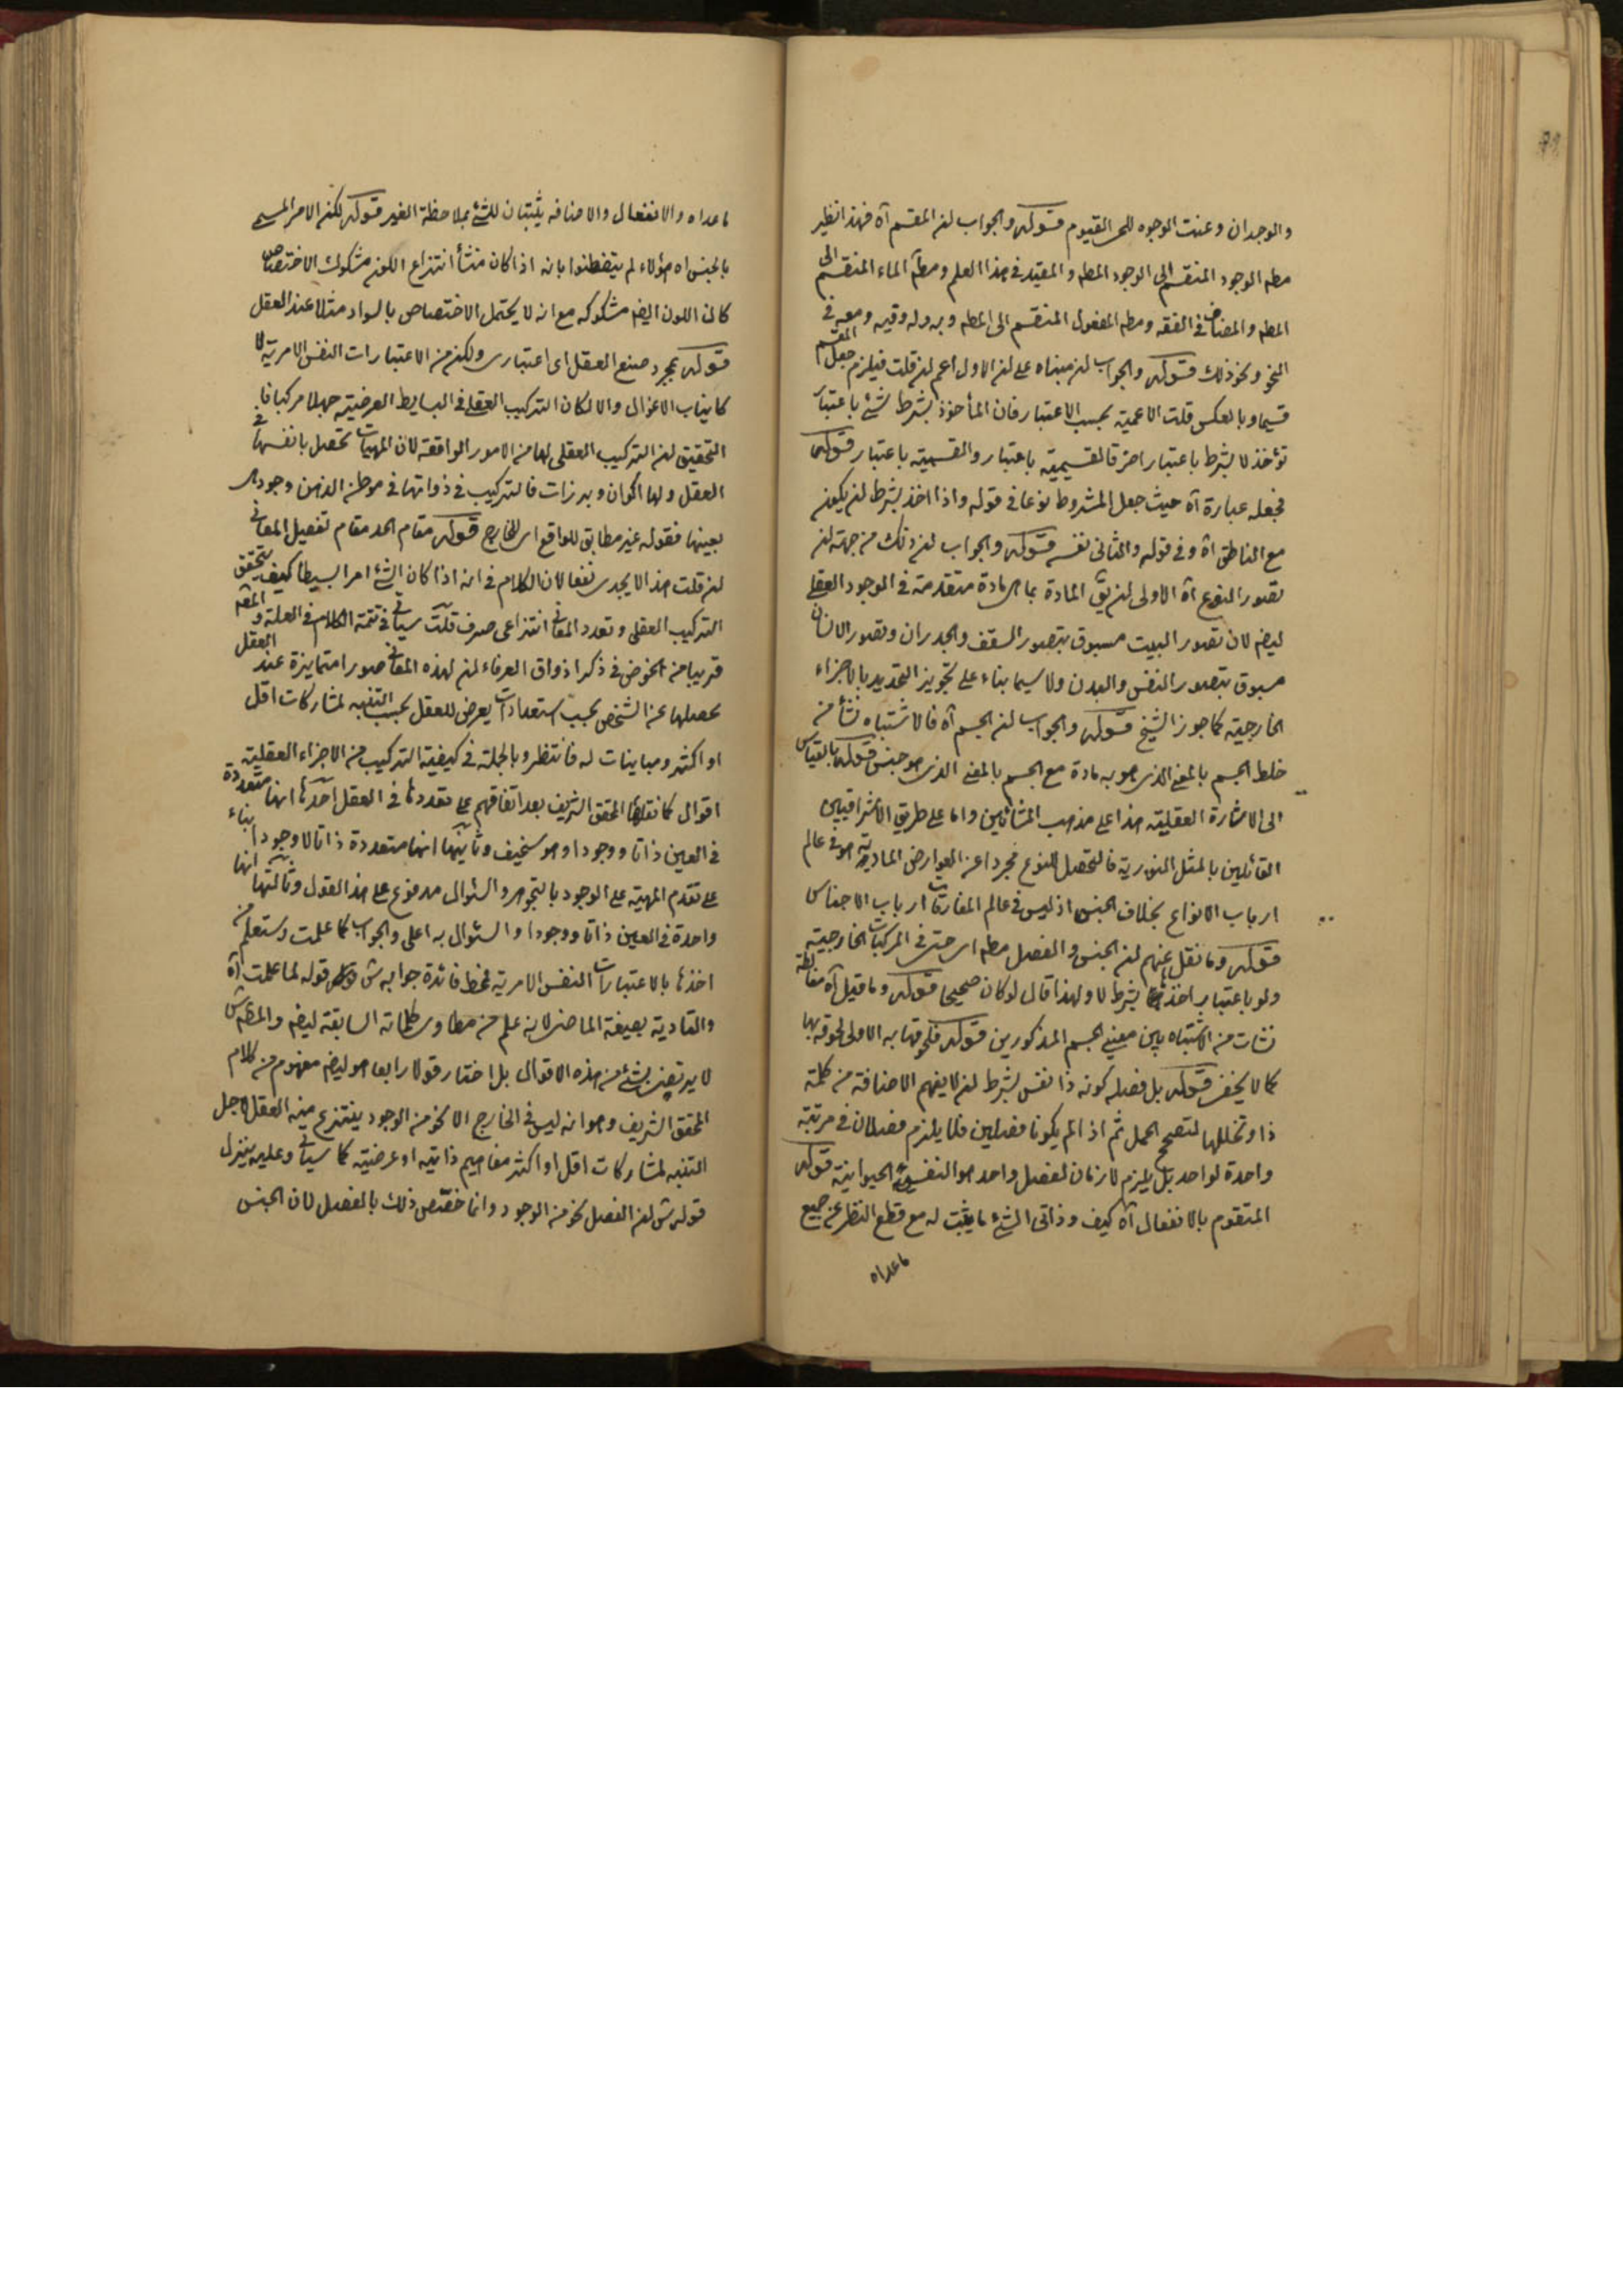 والوجدان وعنت الوجوه للحی القیوم قوله والجواب ان المقسم آه فهذا نظیر
مطه الوجود المنقسم الی الوجود المطه والمقید فی هذا العلم ومطه الماء المنقسم الی
المطه والمضاف فی الفقه ومطه المفعول المنقسم الی المطه وبه وله وفیه ومعه فی
النحو ونحو ذلك قوله والجواب ان مبناه علی ان الاول اعم ان قلت فیلزم جعل المقسم
قسیما وبالعکس قلت الاعمیة بحسب الاعتبار فان المأخوذ بشرط شئ باعتبار
تؤخذ لا بشرط باعتبار اخر فالمقسمیة باعتبار والقسمیة باعتبار قوله
فجعله عبارة آه حیث جعل المشروط نوعا فی قوله واذا اخذ بشرط ان یکون
مع الناطق آه وفی قوله والثانی نفسه قوله والجواب ان ذلك من جهة ان
تصور النوع آه الاولی ان یق المادة بما هی مادة متقدمة فی الوجود العقلی
ایضم لان تصور البیت مسبوق بتصور السقف والجدران وتصور الانسان
مسبوق بتصور النفس والبدن ولا سیما بناء علی تجویز التحدید بالاجزاء
الخارجیة کما جوز الشیخ قوله والجواب ان الجسم آه فالاشتباه نشأ من
خلط الجسم بالمعنی الذی هو به مادة مع الجسم بالمعنی الذی هو جنس قوله بالقیاس
الی الاشارة العقلیة هذا علی مذهب المشائین واما علی طریق الاشراقیین
القائلین بالمثل النوریة فالتحصل للنوع مجردا عن العوارض المادیة هو فی عالم
ارباب الانواع بخلاف الجنس اذ لیس فی عالم المفارقات ارباب الاجناس
قوله وما نقل عنهم ان الجنس والفصل مطه ای حتی فی المرکبات الخارجیة
ولو باعتبار اخذهما بشرط لا ولهذا قال لو کان صحیحا قوله وما قیل آه مغالطة
نشات من الاشتباه بین معنیی الجسم المذکورین قوله فلحوقها به الاولی لحوقه بها
کما لا یخفی قوله بل فصله کونه ذا نفس بشرط ان لا یفهم الاضافة من کلمة
ذا وتخللها لتصحیح الحمل ثم اذا لم یکونا فصلین فلا یلزم فصلان فی مرتبة
واحدة لواحد بل یلزم لازمان لفصل واحد هو النفس الحیوانیة قوله
المتقوم بالانفعال آه کیف وذاتی الشئ ما یثبت له مع قطع النظر عن جمیع
ما عداه
ما عداه والانفعال والاضافه یثبتان للشئ بملاحظة الغیر قوله لکن الامر المسمی
بالجنس اه هؤلاء لم یتفطنوا بانه اذا کان منشأ انتزاع اللون مشکوك الاختصاص
کان اللون ایضم مشکوکه مع انه لا یحتمل الاختصاص بالسواد مثلا عند العقل
قوله بمجرد صنع العقل ای اعتباری ولکن من الاعتبارات النفس الامریة لا
کانیاب الاغوال والا لکان الترکیب العقلی فی البسایط العرضیة جهلا مرکبا فا
التحقیق ان الترکیب العقلی لها من الامور الواقعة لان المهیات تحصل بانفسها فی
العقل ولها اکوان وبرزات فالترکیب فی ذواتها فی موطن الذهن وجودی
بعینها فقوله غیر مطابق للواقع ای للخارج قوله مقام الحد مقام تفصیل المعانی
ان قلت هذا لا یجدی نفعا لان الکلام فی انه اذا کان الشئ امرا بسیطا کیف یتحقق
الترکیب العقلی وتعدد المعانی انتزاعی صرف قلت سیاتی فی تتمة الکلام فی العلة و
قریبا من الخوض فی ذکر اذواق العرفاء ان لهذه المعانی صورا متمایزة عند العقل
یحصلها عن الشخص بحسب استعدادات یعرض للعقل بحسب التنبه لمشارکات اقل
او اکثر ومباینات له فانتظر وبالجلة فی کیفیة الترکیب من الاجزاء العقلیة
اقوال کما نقلها المحقق الشریف بعد اتفاقهم علی تعددها فی العقل احدها انها متعددة
فی العین ذاتا ووجودا وهو سخیف وثانیها انها متعددة ذاتا لا وجودا بناء
علی تقدم المهیة علی الوجود بالتجوهر والسئوال مدفوع علی هذا القول وثالثها انها
واحدة فی العین ذاتا ووجودا والسئوال به اعلی والجواب کما علمت وستعلم من
اخذها بالاعتبارات النفس الامریة فخط فائدة جوابه ش قوله لما علمت آه
والتادیة بصیغة الماضی لانه علم من مطاوی کلماته السابقة ایضم والمصه ش
لا یرتضی بشئ من هذه الاقوال بل اختار قولا رابعا هو ایضم مفهوم من کلام
المحقق الشریف وهو انه لیس فی الخارج الا نحو من الوجود ینتزع منه العقل لاجل
التنبه لمشارکات اقل او اکثر مفاهیم ذاتیه او عرضیة کما سیاتی وعلیه ینزل
قوله ش ان الفصل نحو من الوجود وانما خصص ذلك بالفصل لان الجنس